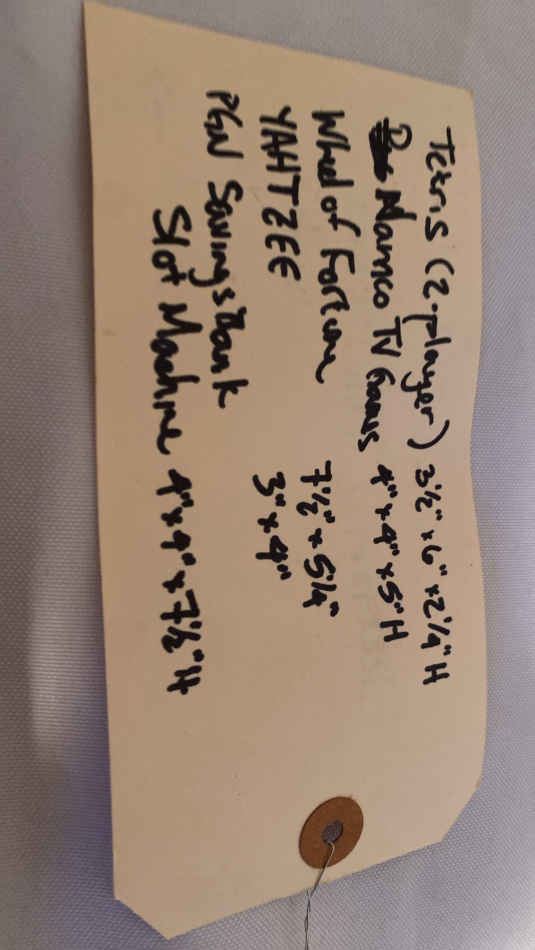 Tetris (2-player) 3½" x 6" x 2¼" H
Namco TV Games 4" x 4" x 5" H
Wheel of Fortune 7½" x 5¼"
YAHTZEE 3" x 4"
PGN Savings Bank
Slot Machine 4" x 4" x 7½" H